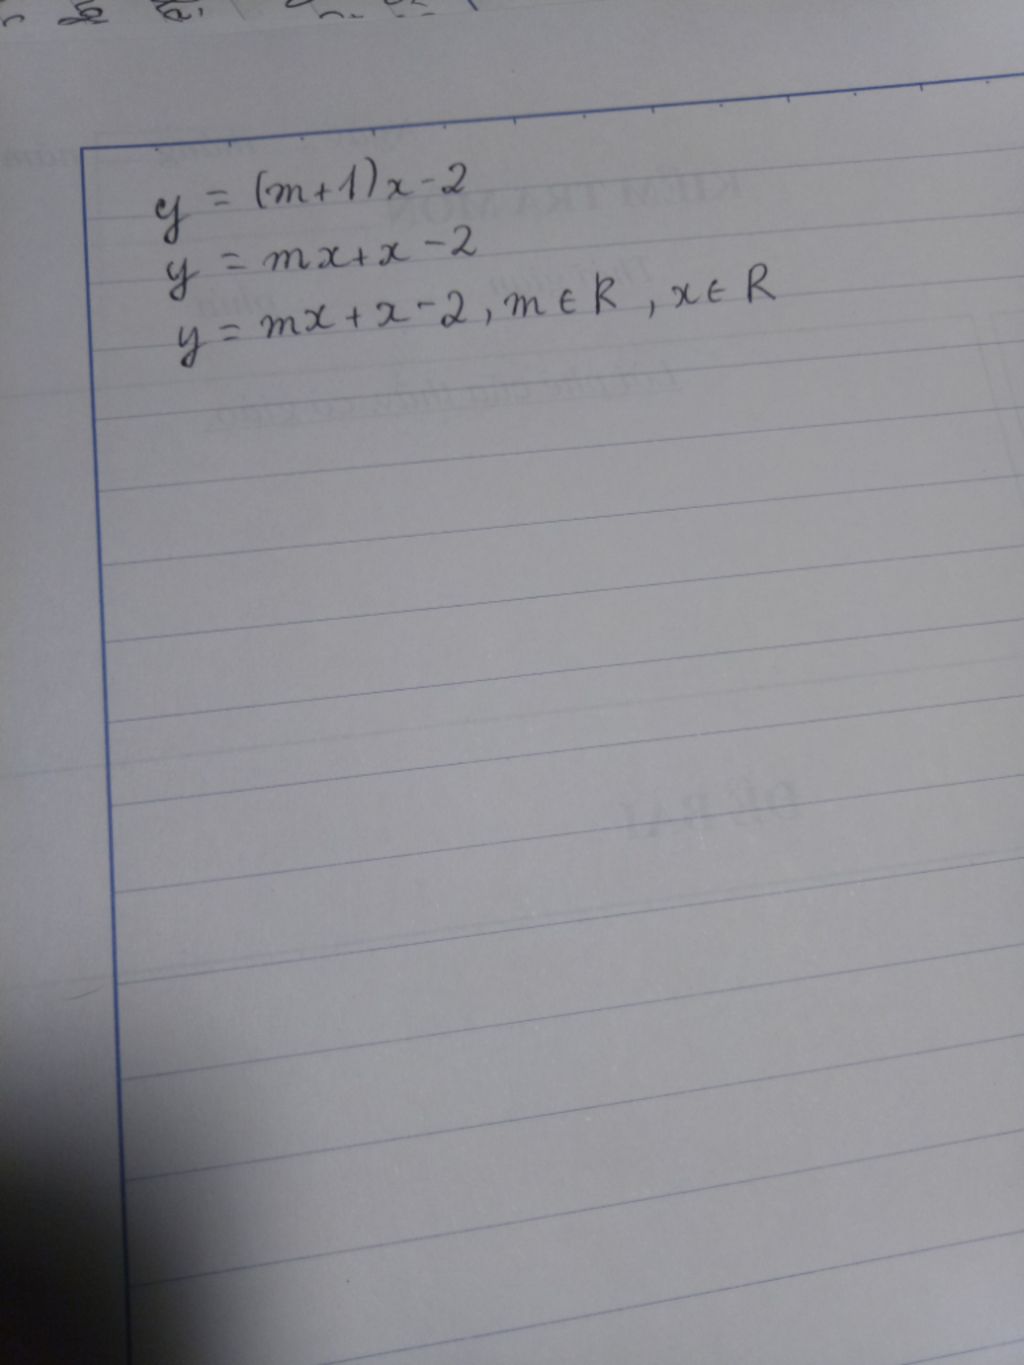 y = (m+1)x-2
y = mx+x-2
y = mx+x-2, m ∈ R, x ∈ R